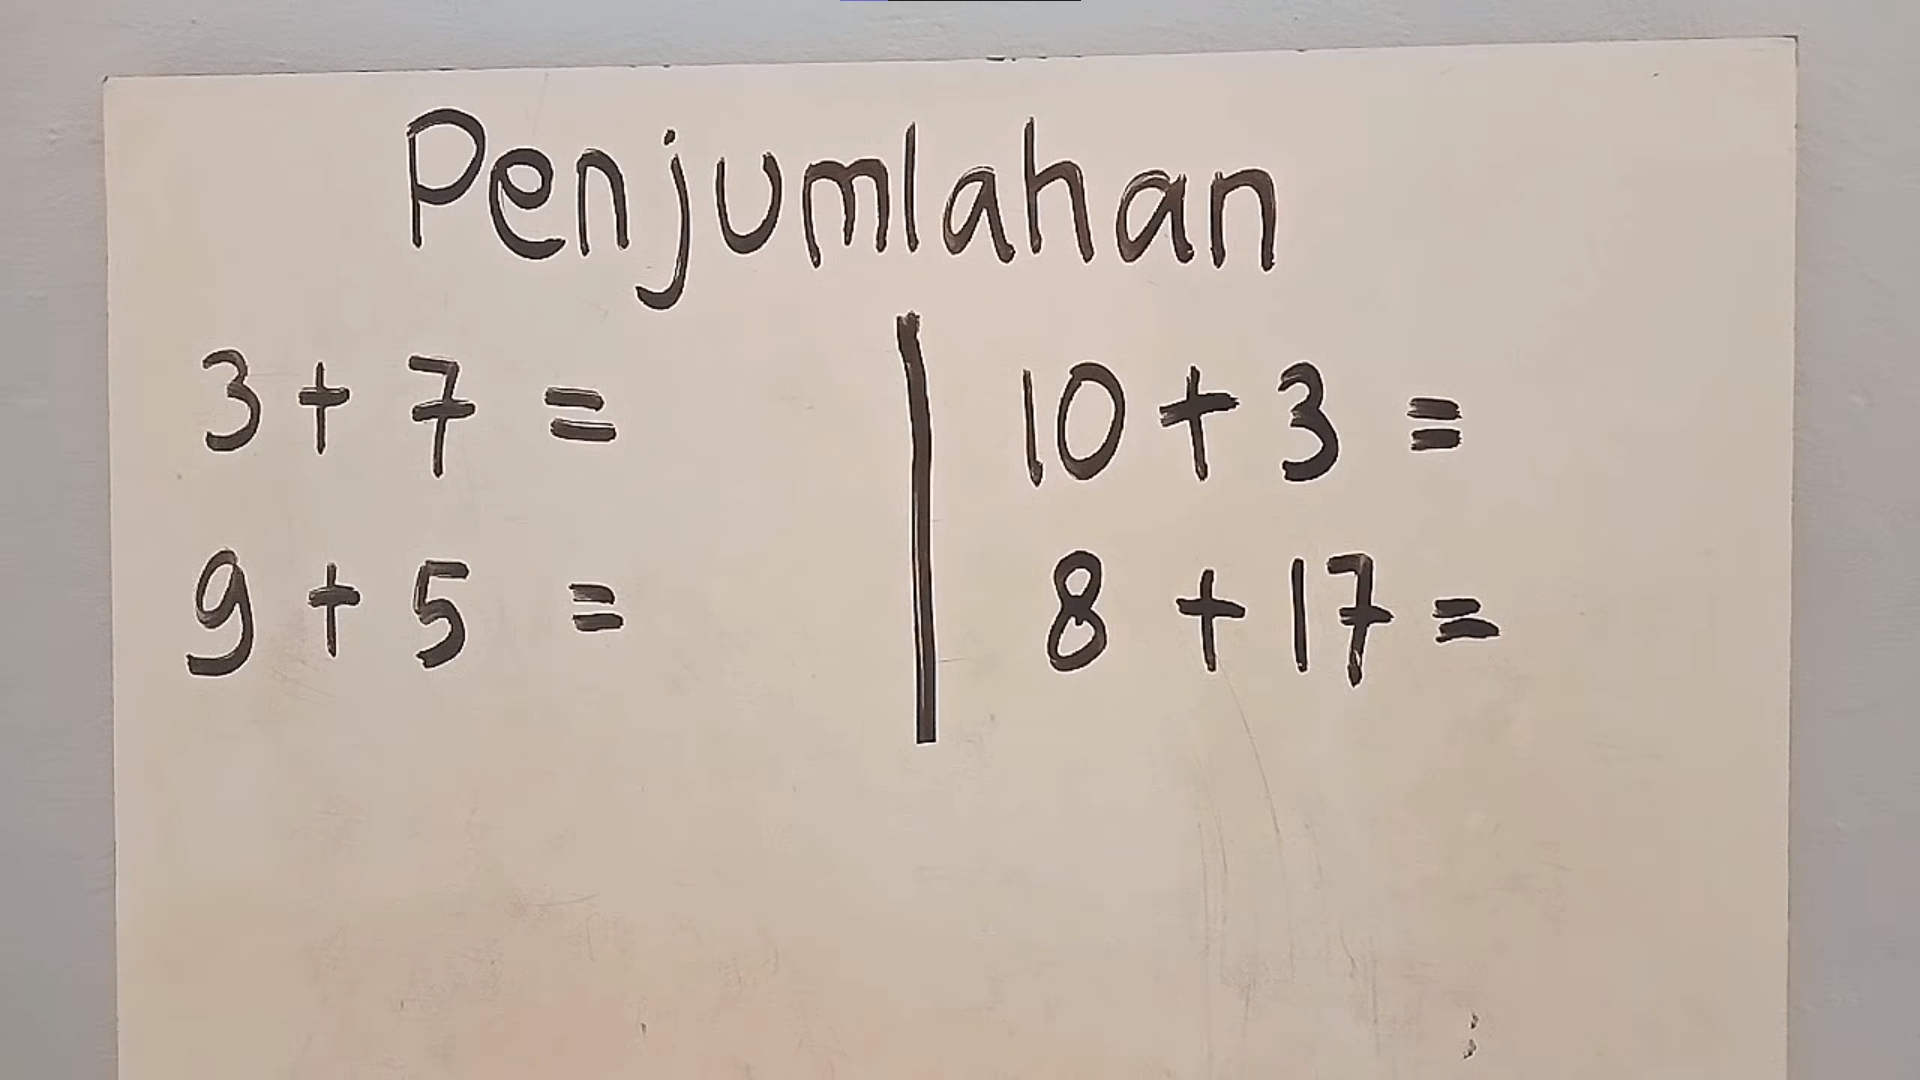 Penjumlahan
3 + 7 =
9 + 5 =
10 + 3 =
8 + 17 =